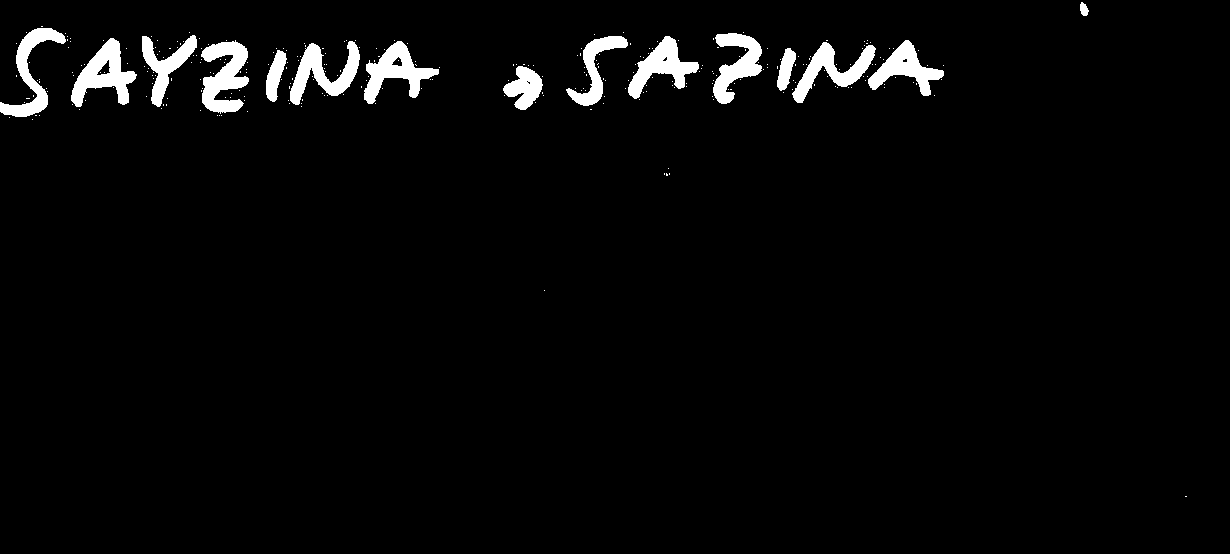 SAYZINA → SAZINA